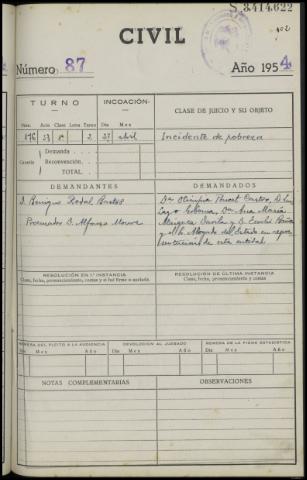 S 3414622
102
CIVIL
Número: 87 Año 1954
TURNO INCOACIÓN CLASE DE JUICIO Y SU OBJETO
Núm. Acta Clase Letra Tarea Día Mes
876 23 2 27 abril Incidente de pobreza
Cuantía Demanda
Reconvención
TOTAL
DEMANDANTES DEMANDADOS
D. Enrique Rodal
Procurador D. Alfonso
Dª Olimpia Castro, D.
Dª Ana María
y D. Emilio
y el Sr. Abogado del Estado en
de esta entidad.
RESOLUCIÓN EN 1.ª INSTANCIA RESOLUCIÓN DE ÚLTIMA INSTANCIA
Clase, fecha, pronunciamiento, costas y si fué firme o apelada Clase, fecha, pronunciamiento y costas
REMESA DEL PLEITO A LA AUDIENCIA DEVOLUCIÓN AL JUZGADO REMESA DE LA FICHA ESTADÍSTICA
Día Mes Año Día Mes Año Día Mes Año
NOTAS COMPLEMENTARIAS OBSERVACIONES